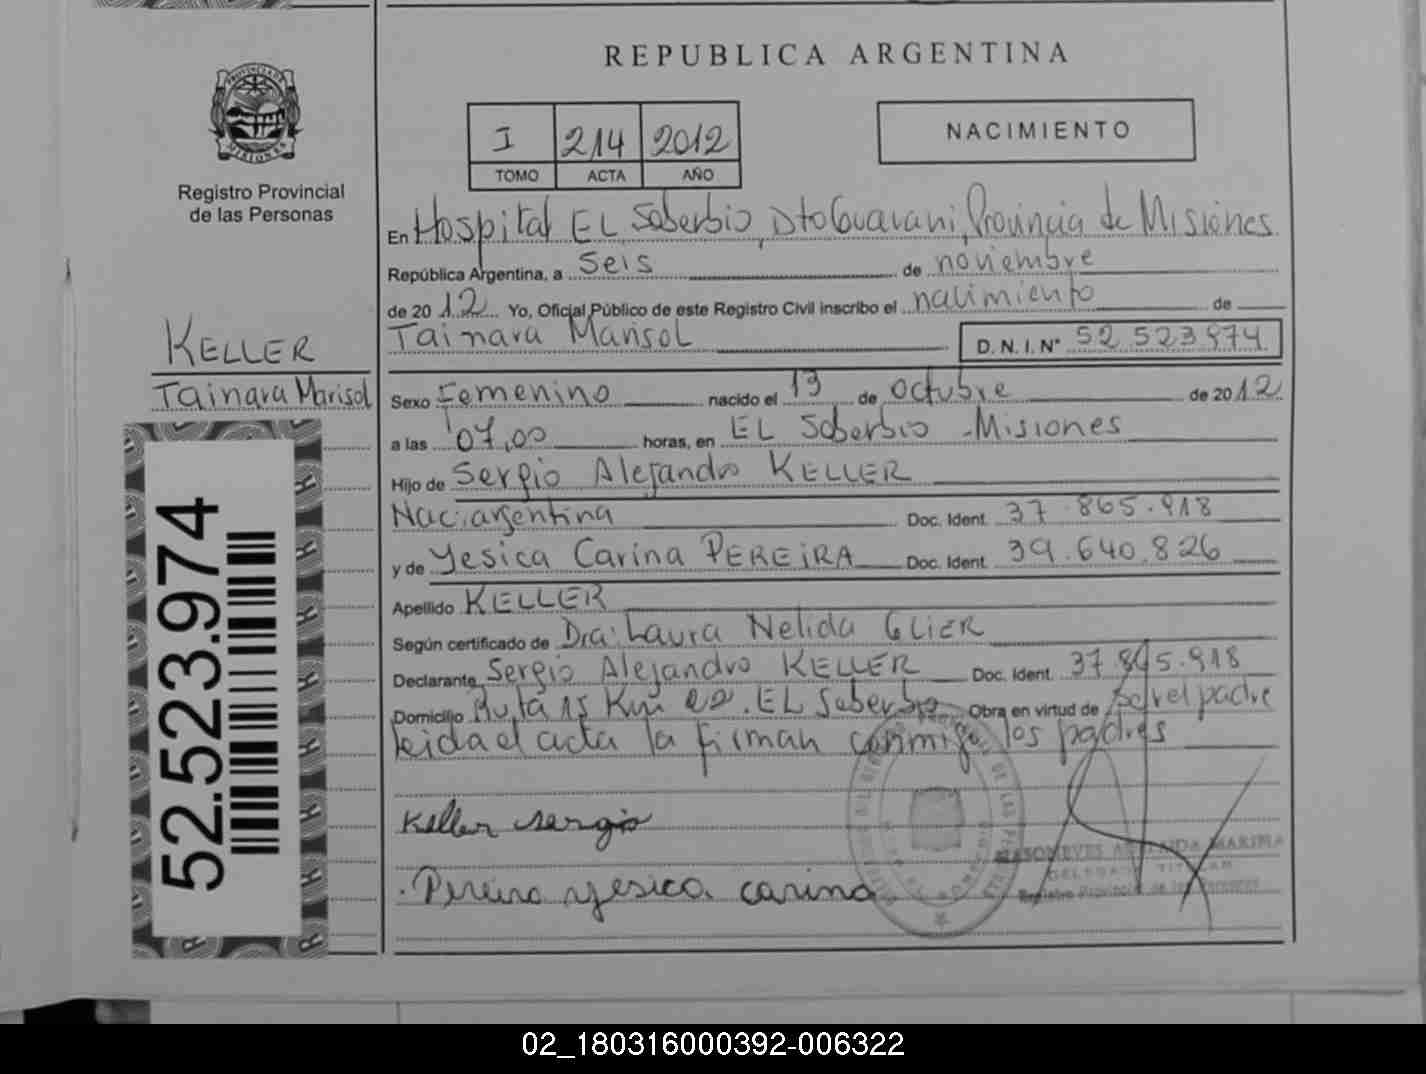 REPUBLICA ARGENTINA
PROVINCIA DE
MISIONES
Registro Provincial
de las Personas
I 214 2012
TOMO ACTA AÑO
NACIMIENTO
En Hospital EL Soberbio, Dto Guarani, Provincia de Misiones
República Argentina, a seis de noviembre
de 2012 Yo, Oficial Público de este Registro Civil inscribo el nacimiento de
Tainara Marisol D. N. I. N° 52.523.974
KELLER
Tainara Marisol
Sexo Femenino nacido el 13 de octubre de 2012
a las 07,00 horas, en EL Soberbio - Misiones
Hijo de Sergio Alejandro KELLER
Nac: argentina Doc. Ident. 37.865.918
y de Yesica Carina PEREIRA Doc. Ident. 39.640.826
Apellido KELLER
Según certificado de Dra: Laura Nelida GLIER
Declarante Sergio Alejandro KELLER Doc. Ident. 37.865.918
Domicilio Ruta 15 Km 22. EL Soberbio Obra en virtud de Ser el padre
leida el acta la firman conmigo los padres
52.523.974
Keller Sergio
Pereira Yesica Carina
MARINA
TITULAR
Registro Provincial de las Personas
02_180316000392-006322